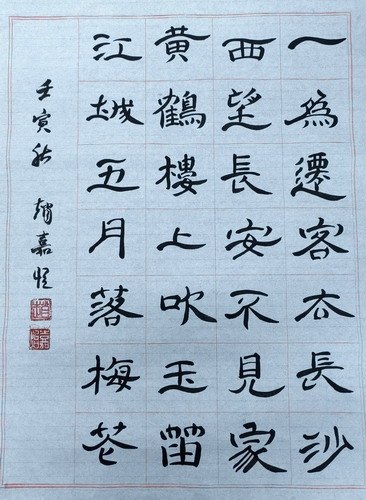 一爲遷客去長沙
西望長安不見家
黄鶴樓上吹玉笛
江城五月落梅花
壬寅秋 趙嘉